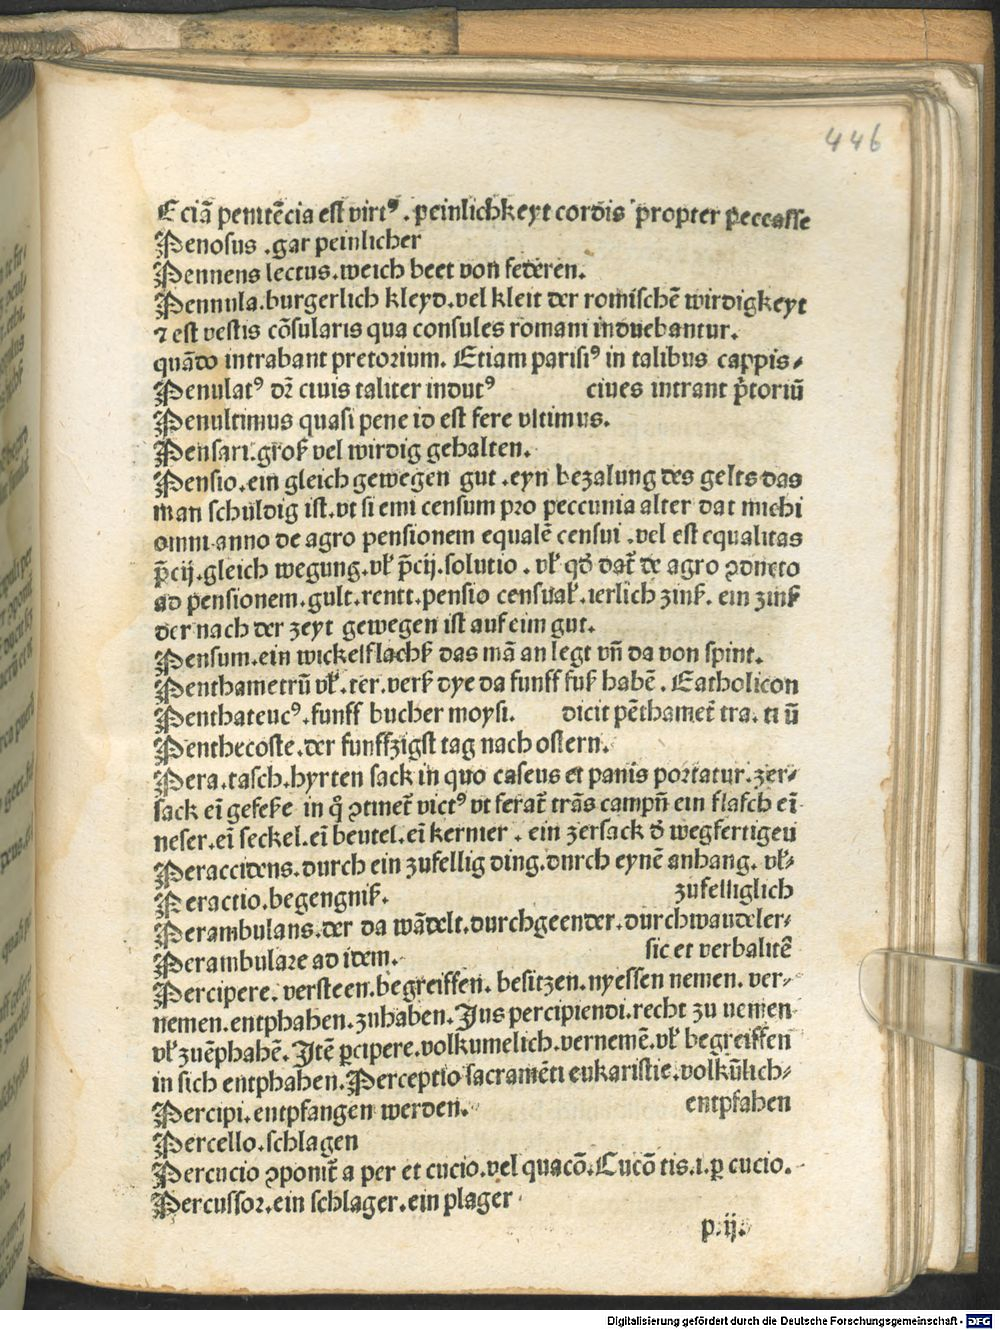 446
Eciã penitẽcia est virtꝰ . peinlichkeyt cordis propter peccasse
Penosus .gar peinlicher
Pennens lectus.weich beet von federen.
Pennula.burgerlich kleyd.vel kleit der romischẽ wirdigkeyt
⁊ est vestis cõsularis qua consules romani induebantur.
quãdo intrabant pretorium. Etiam parisiꝰ in talibus cappis⸗
Penulatꝰ dr̃ ciuis taliter indutꝰ ciues intrant p̃toriũ
Penultimus quasi pene id est fere vltimus.
Pensari.groß vel wirdig gehalten.
Pensio.ein gleich gewegen gut .eyn bezalung des gelts das
man schuldig ist.vt si emi censum pro peccunia alter dat michi
omni anno de agro pensionem equalẽ censui .vel est equalitas
p̃cij.gleich wegung.vł p̃cij.solutio . vł qđ dat̃ de agro ꝯducto
ad pensionem.gult.rentt.pensio censual.ierlich zinß. ein zinß
der nach der zeyt gewegen ist auf eim gut.
Pensum.ein wickelflachß das mã an legt vñ da von spint.
Penthametrũ vł.ter.verß dye da funff fuß habẽ . Catholicon
Penthateucꝰ.funff bucher moysi. dicit pẽthamet̃ tra.ti ũ
Penthecoste.der funffzigst tag nach ostern.
Pera.tasch.hyrten sack in quo caseus et panis portatur.zer⸗
sack eĩ gefeße in q̊ ꝯtinet̃ victꝰ vt ferat̃ trãs campũ ein flasch eĩ
neser.eĩ seckel.eĩ beutel.eĩ kernier . ein zersack đ wegfertigen
Peraccidens.durch ein zufellig ding.durch eynẽ anhang. vł⸗
Peractio.begengniß. zufelliglich
Perambulans.der da wãdelt.durchgeender.durchwandeler⸗
Perambulare ad idem. sic et verbalitẽ
Percipere. versteen.begreiffen. besitzen.nyessen nemen. ver⸗
nemen.entphahen.zuhaben.Jus percipiendi.recht zu nemen
vł zuẽphahẽ.Jtẽ ꝑcipere.volkumelich.vernemẽ.vł begreiffen
in sich entphahen.Perceptio sacramẽti eukaristie.volkũlich⸗
Percipi.entpfangen werden. entpfahen
Percello.schlagen
Percucio ꝯponit̃ a per et cucio.vel quacõ.Cucõ tis.i.ꝑ cucio.
Percussor.ein schlager.ein plager
p.ij.
Digitalisierung gefördert durch die Deutsche Forschungsgemeinschaft - DFG